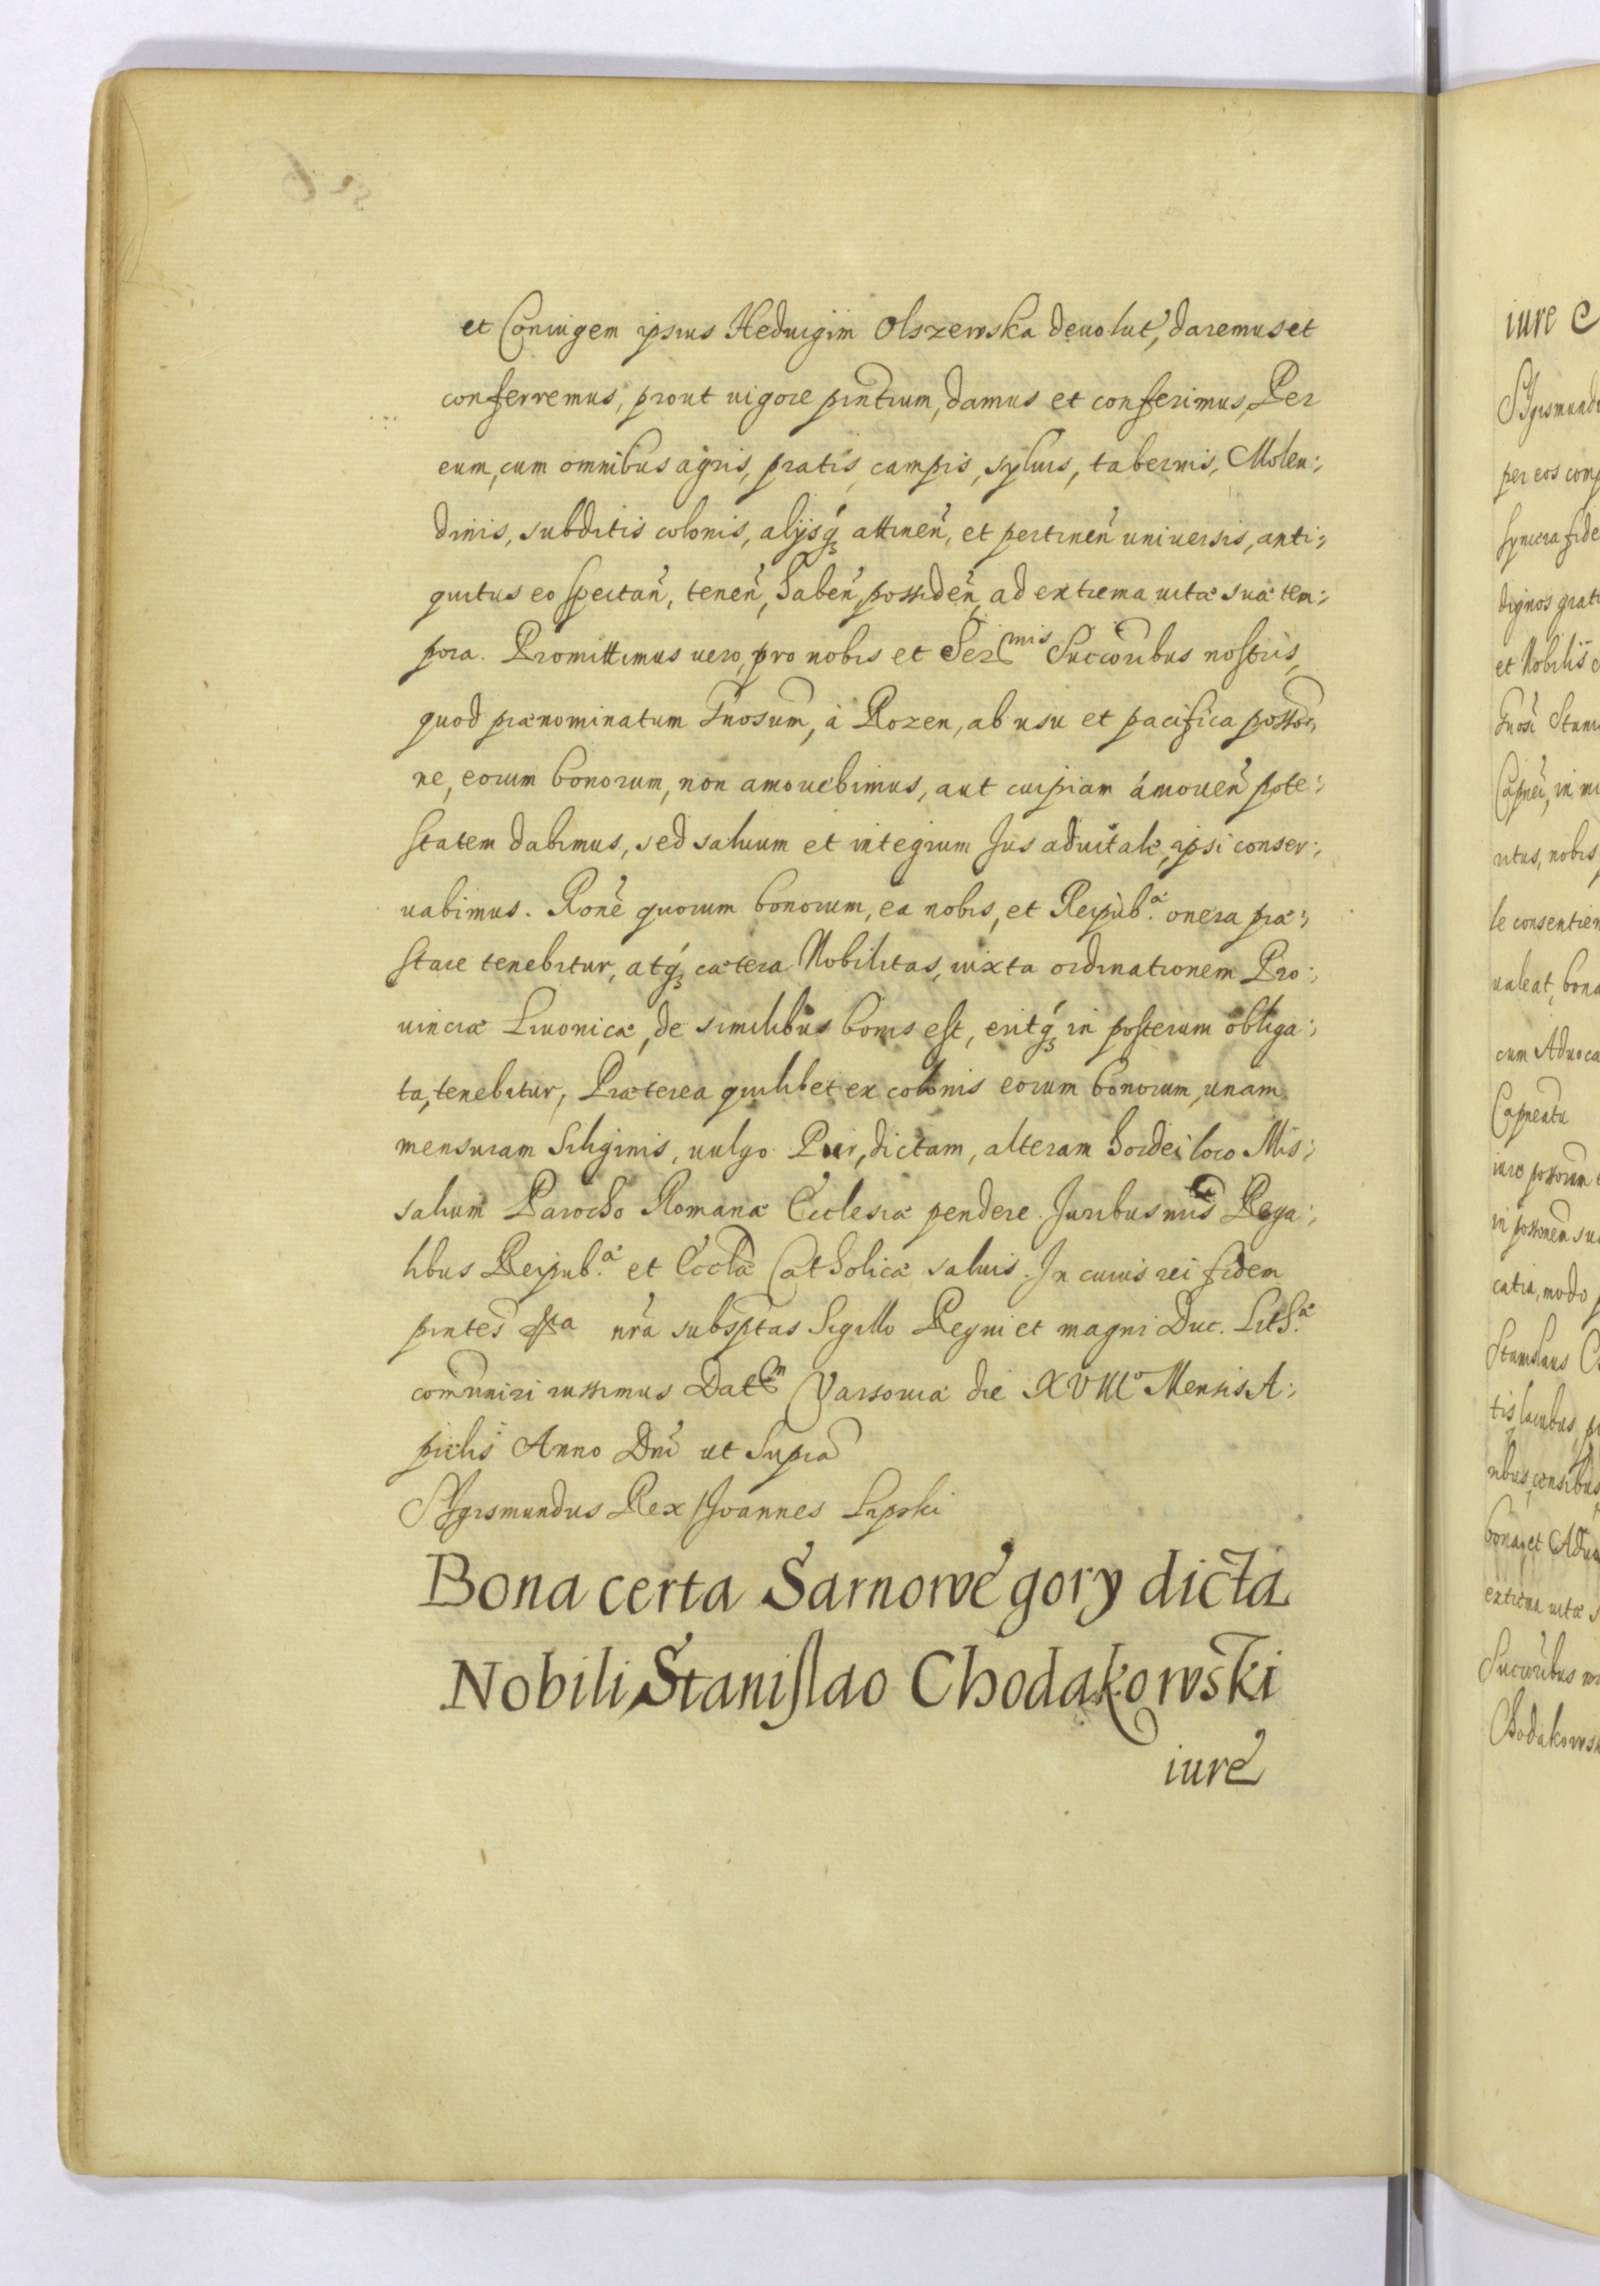 et Coniugem ipsius Hedvigim Olszewska deuolut, daremus et
conferremus, prout uigore pñtium, damus et conferimus, Per
eum, cum omnibus agris, pratis, campis, syluis, tabernis, Molen:,
dinis, subditis colonis, alijsq́ꝫ attineñ, et pertineñ uniuersis, anti:,
quitus eo spectañ, teneñ, habeñ, possideñ, ad extrema uitæ suæ tem:,
pora. Promittimus uero, pro nobis et Ser mis Succoribus nostris,
quod prænominatum Gnosum, à Rozen, ab usu et pacifica posso:,
ne, eorum bonorum, non amouebimus, aut cuipiam ámoueñ pote:,
statem dabimus, sed saluum et integrum Jus aduitale, ipsi conser:,
uabimus. Rone quorum bonorum, ea nobis, et Reipub.æ onera præ:,
stare tenebitur, atq́ꝫ cætera Nobilitas, iuxta ordinationem Pro:,
uinciæ Liuonicæ, de similibus bonis est, eritq́ꝫ in posterum obliga:,
ta, tenebitur, Præterea quilibet ex colonis eorum bonorum, unam
mensuram Siliginis, uulgo Pur, dictam, alteram hordei loco Mis:,
salium Parocho Romanæ Ecclesiæ pendere. Juribus nris Rega:,
libus Reipub.æ et Eccla Catholicæ saluis. In cuius rei fidem
pñtes nrã subsptas Sigillo Regni et magni Duc. Lith.æ
comuniri iussimus Dat Varsouiæ die XVIIIo Mensis A:,
prilis Anno Dni ut Supra
Sygismundus Rex Joannes Lipski
Bona certa Sarnowe gory dicta
Nobili Stanislao Chodakowski
iure
iure
Sygismund
per eos com
syncera fide
dignos grati
et Nobilis
Gnosi Stani
Capnei, in
ritus, nobis
le consentien
ualeat, bona
cum Aduoca
Capneatu
iure possorum
in possonem su
catia, modo
Stanislaus
tis, lacubus,
ribus, censibus
bona, et Adu
extrema uitæ
Succoribus
Chodakows